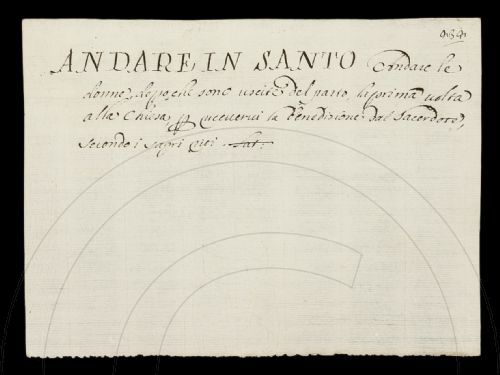 434
ANDARE, IN SANTO Andare le
donne, doppo che sono uscite del parto, la prima volta
alla Chiesa, p ricevervi la Benedizione dal Sacerdote,
secondo i sagri